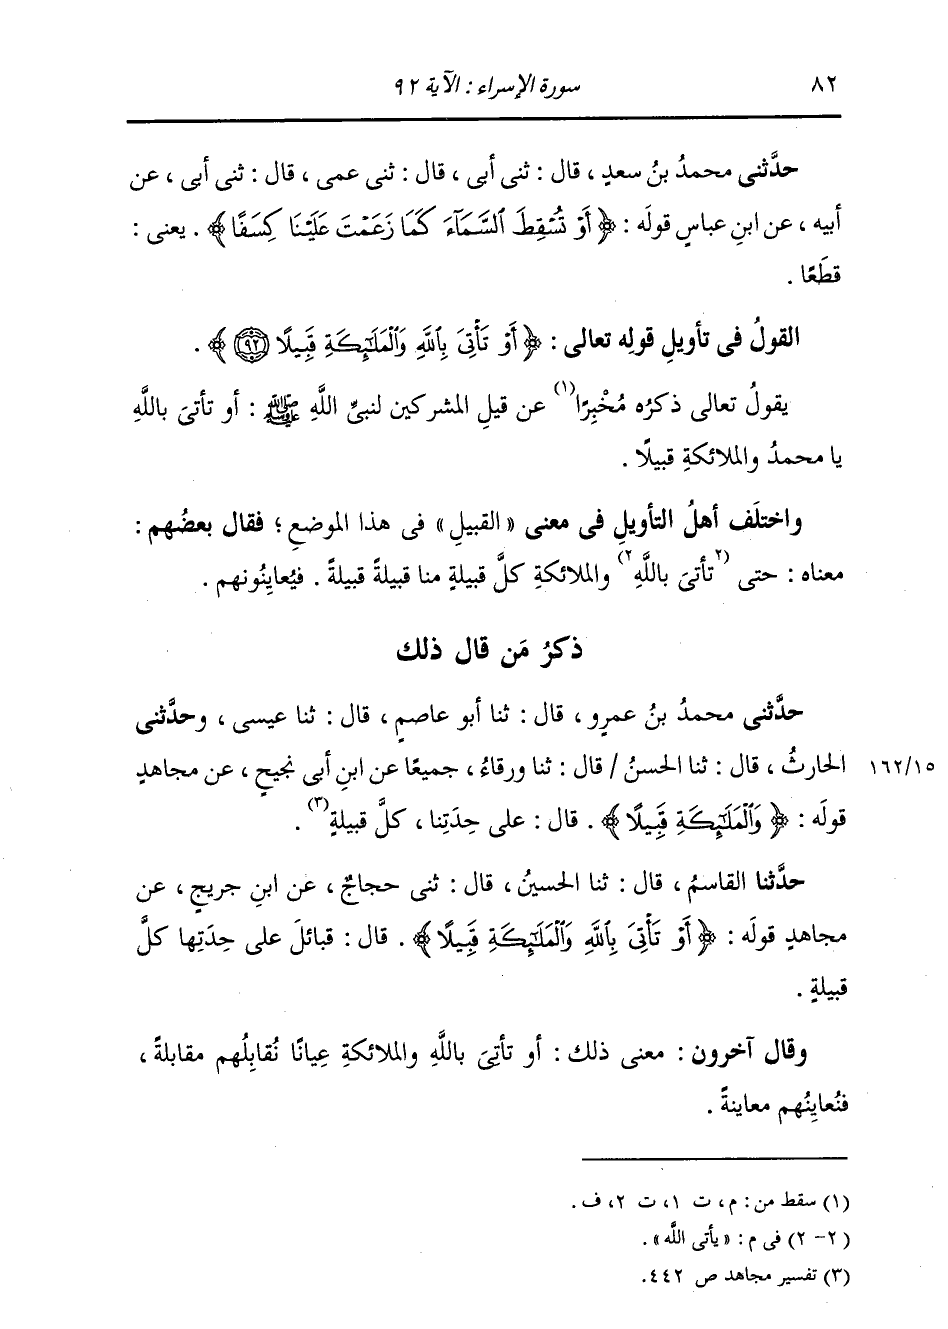 ٨٢ سورة الإسراء : الآية ٩٢
حدَّثنى محمدُ بنُ سعدٍ ، قال : ثنى أبى ، قال : ثنى عمى ، قال : ثنى أبى ، عن
أبيه ، عن ابنِ عباسٍ قولَه : ﴿ أَوْ تُسْقِطَ ٱلسَّمَآءَ كَمَا زَعَمْتَ عَلَيْنَا كِسَفًا ﴾ . يعنى :
قطَعًا .
القولُ فى تأويلِ قولِه تعالى : ﴿ أَوْ تَأْتِىَ بِٱللَّهِ وَٱلْمَلَٰٓئِكَةِ قَبِيلًا ٩٢ ﴾ .
يقولُ تعالى ذكرُه مُخْبِرًا(١) عن قيلِ المشركين لنبىِّ اللَّهِ ﷺ : أو تأتىَ باللَّهِ
يا محمدُ والملائكةِ قبيلًا .
واختلَف أهلُ التأويلِ فى معنى « القبيلِ » فى هذا الموضعِ ؛ فقال بعضُهم :
معناه : حتى (٢تأتىَ باللَّهِ٢) والملائكةِ كلَّ قبيلةٍ منا قبيلةً قبيلةً . فيُعاينُونهم .
ذكرُ مَن قال ذلك
حدَّثنى محمدُ بنُ عمرٍو ، قال : ثنا أبو عاصمٍ ، قال : ثنا عيسى ، وحدَّثنى
الحارثُ ، قال : ثنا الحسنُ / قال : ثنا ورقاءُ ، جميعًا عن ابنِ أبى نجيحٍ ، عن مجاهدٍ ١٦٢/١٥
قولَه : ﴿ وَٱلْمَلَٰٓئِكَةِ قَبِيلًا ﴾ . قال : على حِدَتِنا ، كلَّ قبيلةٍ(٣) .
حدَّثنا القاسمُ ، قال : ثنا الحسينُ ، قال : ثنى حجاجٌ ، عن ابنِ جريجٍ ، عن
مجاهدٍ قولَه : ﴿ أَوْ تَأْتِىَ بِٱللَّهِ وَٱلْمَلَٰٓئِكَةِ قَبِيلًا ﴾ . قال : قبائلَ على حِدَتِها كلَّ
قبيلةٍ .
وقال آخرون : معنى ذلك : أو تأتِىَ باللَّهِ والملائكةِ عِيانًا نُقابِلُهم مقابلةً ،
فنُعاينُهم معاينةً .
(١) سقط من : م ، ت ١، ت ٢، ف .
(٢ - ٢) فى م : « يأتى اللَّه » .
(٣) تفسير مجاهد ص ٤٤٢.